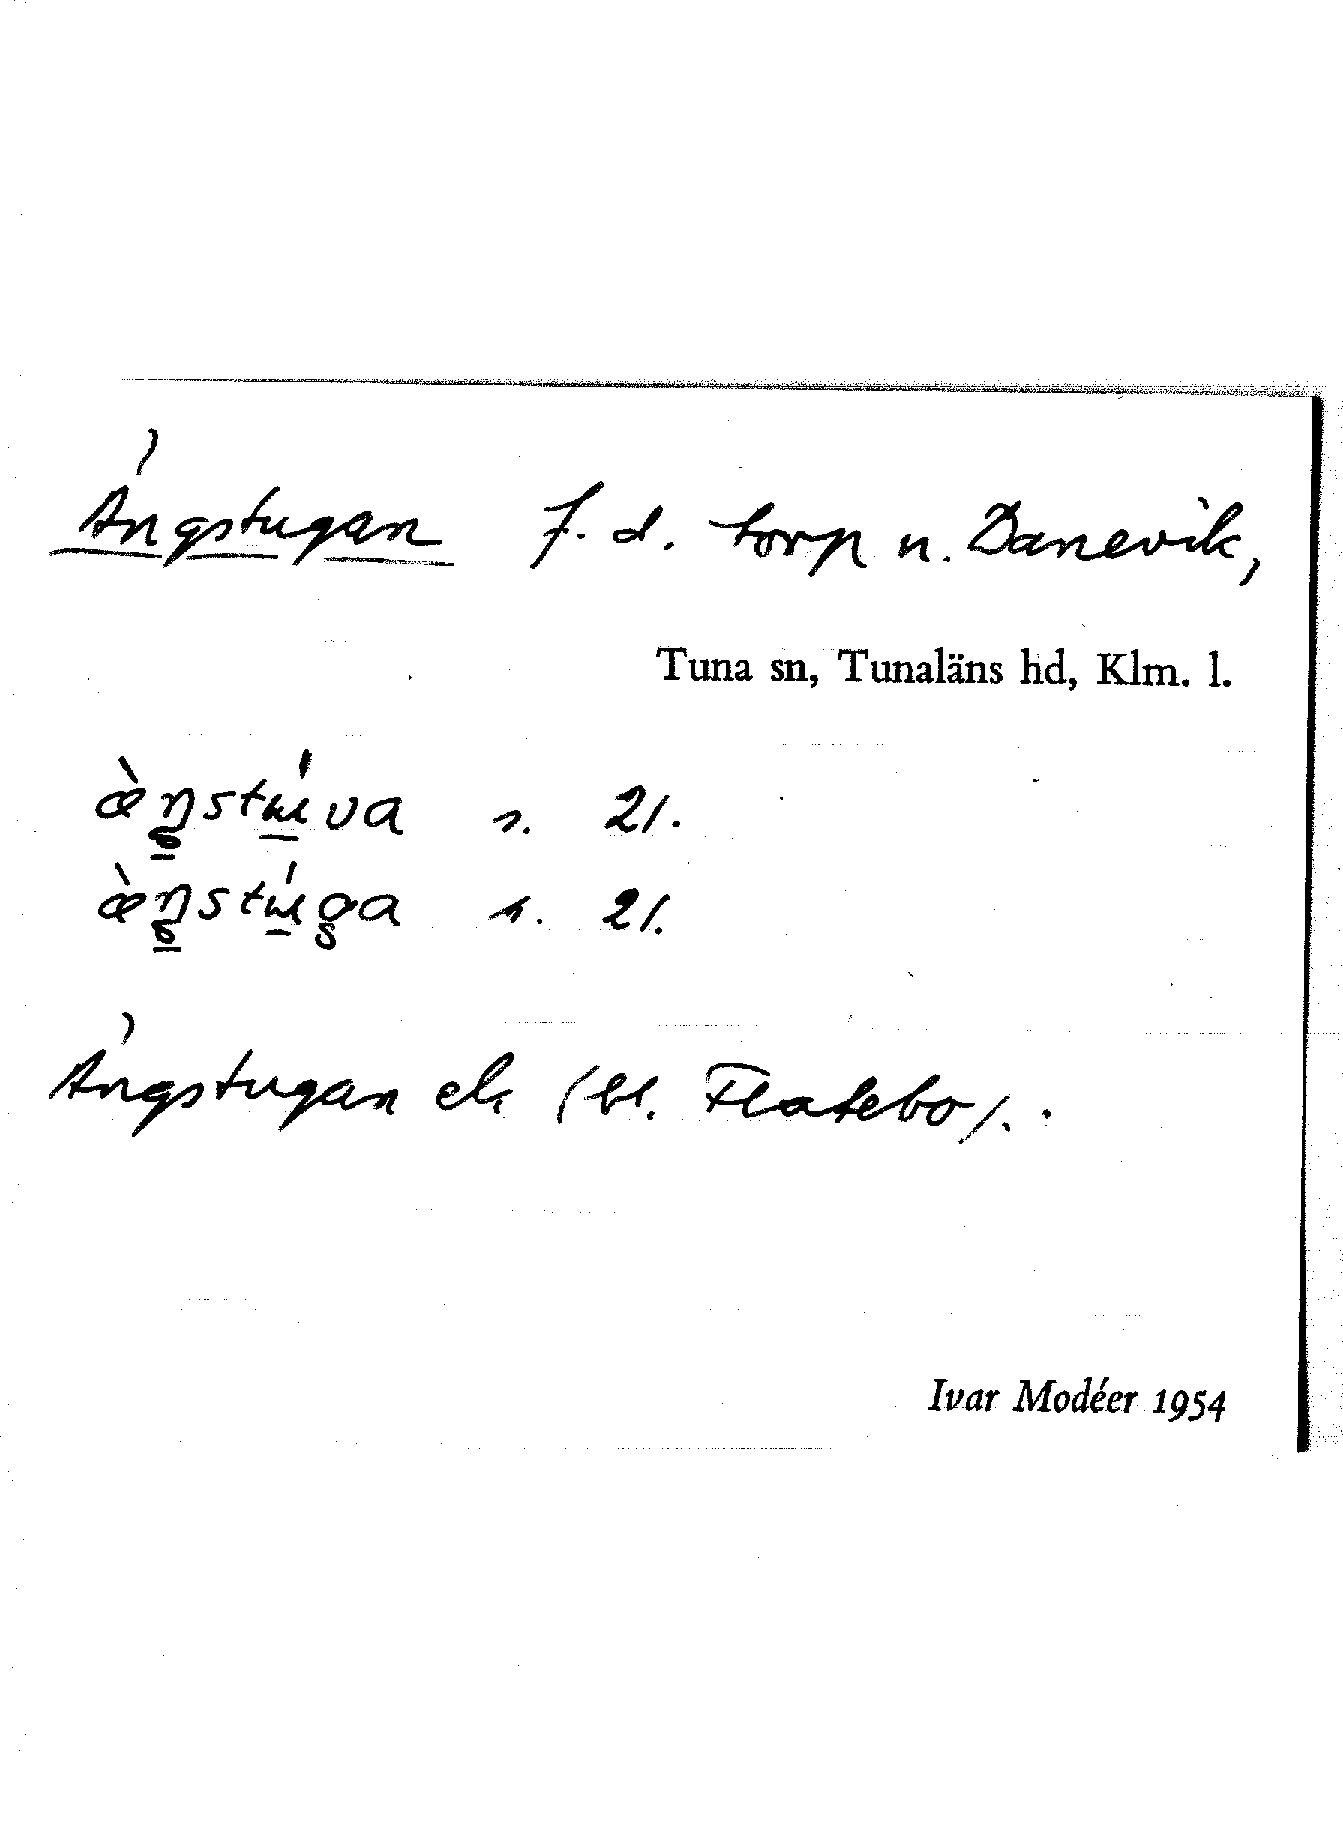 Ängstugan f. d. torp u. Danevik,
Tuna sn, Tunaläns hd, Klm. l.
æ̀ŋstɯ́va s. 21.
æ̀ŋstɯ́ga s. 21.
Ängstugan ek (bl. Flatebo).
Ivar Modéer 1954